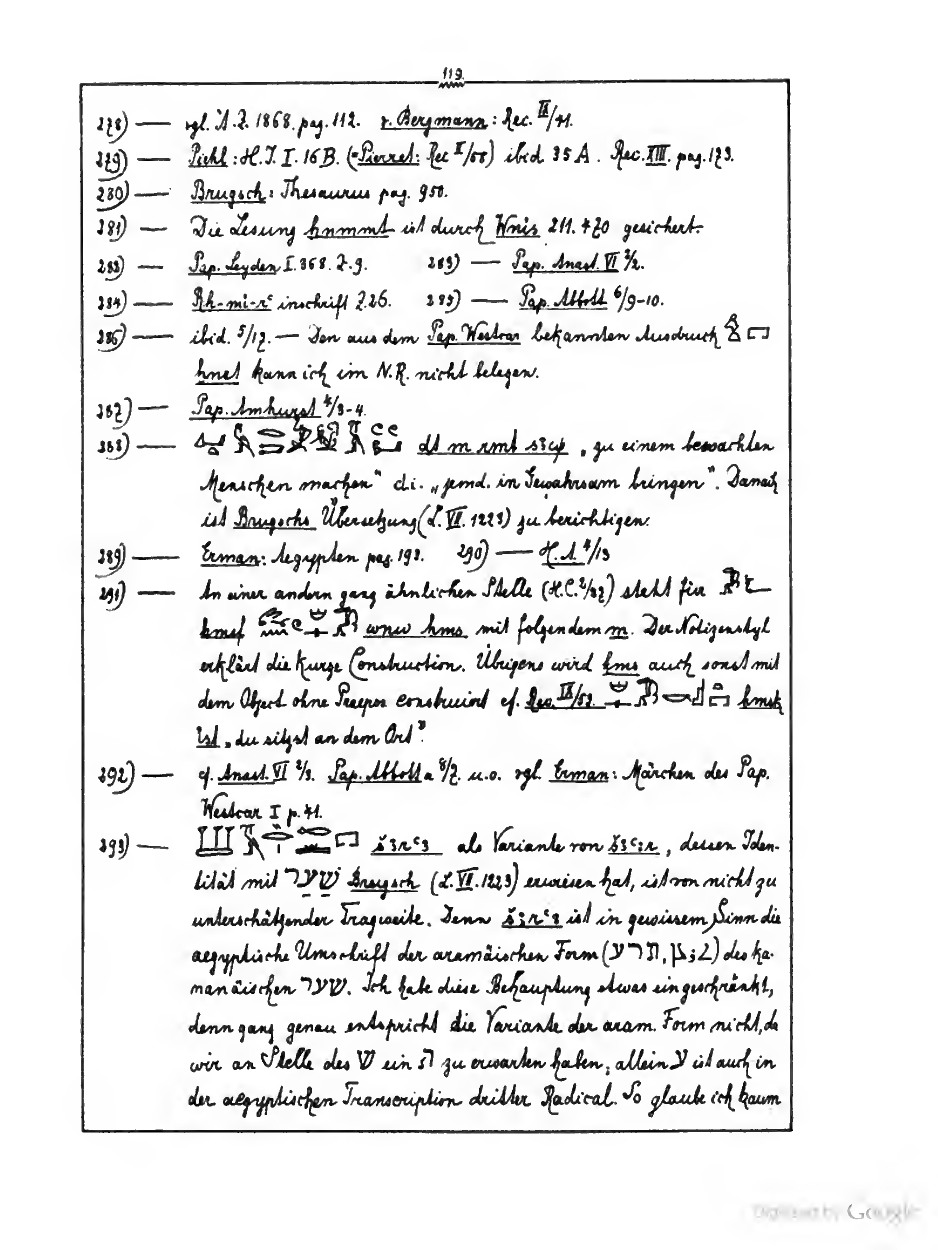 119.
278) — vgl. Ä.Z. 1868. pag. 112. v. Bergmann: Rec. IX/41.
279) — Piehl: H.I. I. 16 B. (= Pierret: Rec II/58) ibid 35 A. Rec. XIII. pag. 173.
280) — Brugsch: Thesaurus pag. 950.
281) — Die Lesung hnmmt ist durch Wnis 211. 470 gesichert.
282) — Pap. Leyden I. 368. Z. 9. 283) — Pap. Anast. VI 2/2.
284) — Rh-mi-rꜥ inschrift Z 26. 285) — Pap. Abbott 6/9-10.
286) — ibid. 5/17. — Den aus dem Pap. Westcar bekannten Ausdruck
hnet kann ich im N.R. nicht belegen.
287) — Pap. Amhurst 4/3-4.
288) — dt m rmt „zu einem bewachten
Menschen machen" d.i. „jemd. in Gewahrsam bringen". Danach
ist Brugschs Übersetzung (L. VII. 1223) zu berichtigen.
289) — Erman: Aegypten pag. 193. 290) — H. A 4/13
291) — An einer andern ganz ähnlichen Stelle (H.C. 2/27) steht für
hmsf wnw hms mit folgendem m. Der Notizenstyl
erklärt die kurze Construction. Übrigens wird hms auch sonst mit
dem Object ohne Praepos construirt cf. Rec. IX/52. hmsk
ist „du sitzst an dem Ort".
292) — cf. Anast. VI 2/3. Pap. Abbott a 8/7. u.o. vgl. Erman: Märchen des Pap.
Westcar I p. 41.
293) — š3rꜥ3 als Variante von š3ꜥ3r, dessen Iden-
tität mit שַׁעַר Brugsch (L. VII. 1223) erwisen hat, ist von nicht zu
unterschätzender Tragweite. Denn š3rꜥ3 ist in gewissem Sinn die
aegyptische Umschrift der aramäischen Form (תרע, ) des ka-
nanäischen שער. Ich habe diese Behauptung etwas eingeschränkt,
denn ganz genau entspricht die Variante der aram. Form nicht, da
wir an Stelle des ש ein ת zu erwarten haben, allein ע ist auch in
der aegyptischen Transcription dritter Radical. So glaube ich kaum
Digitized by Google